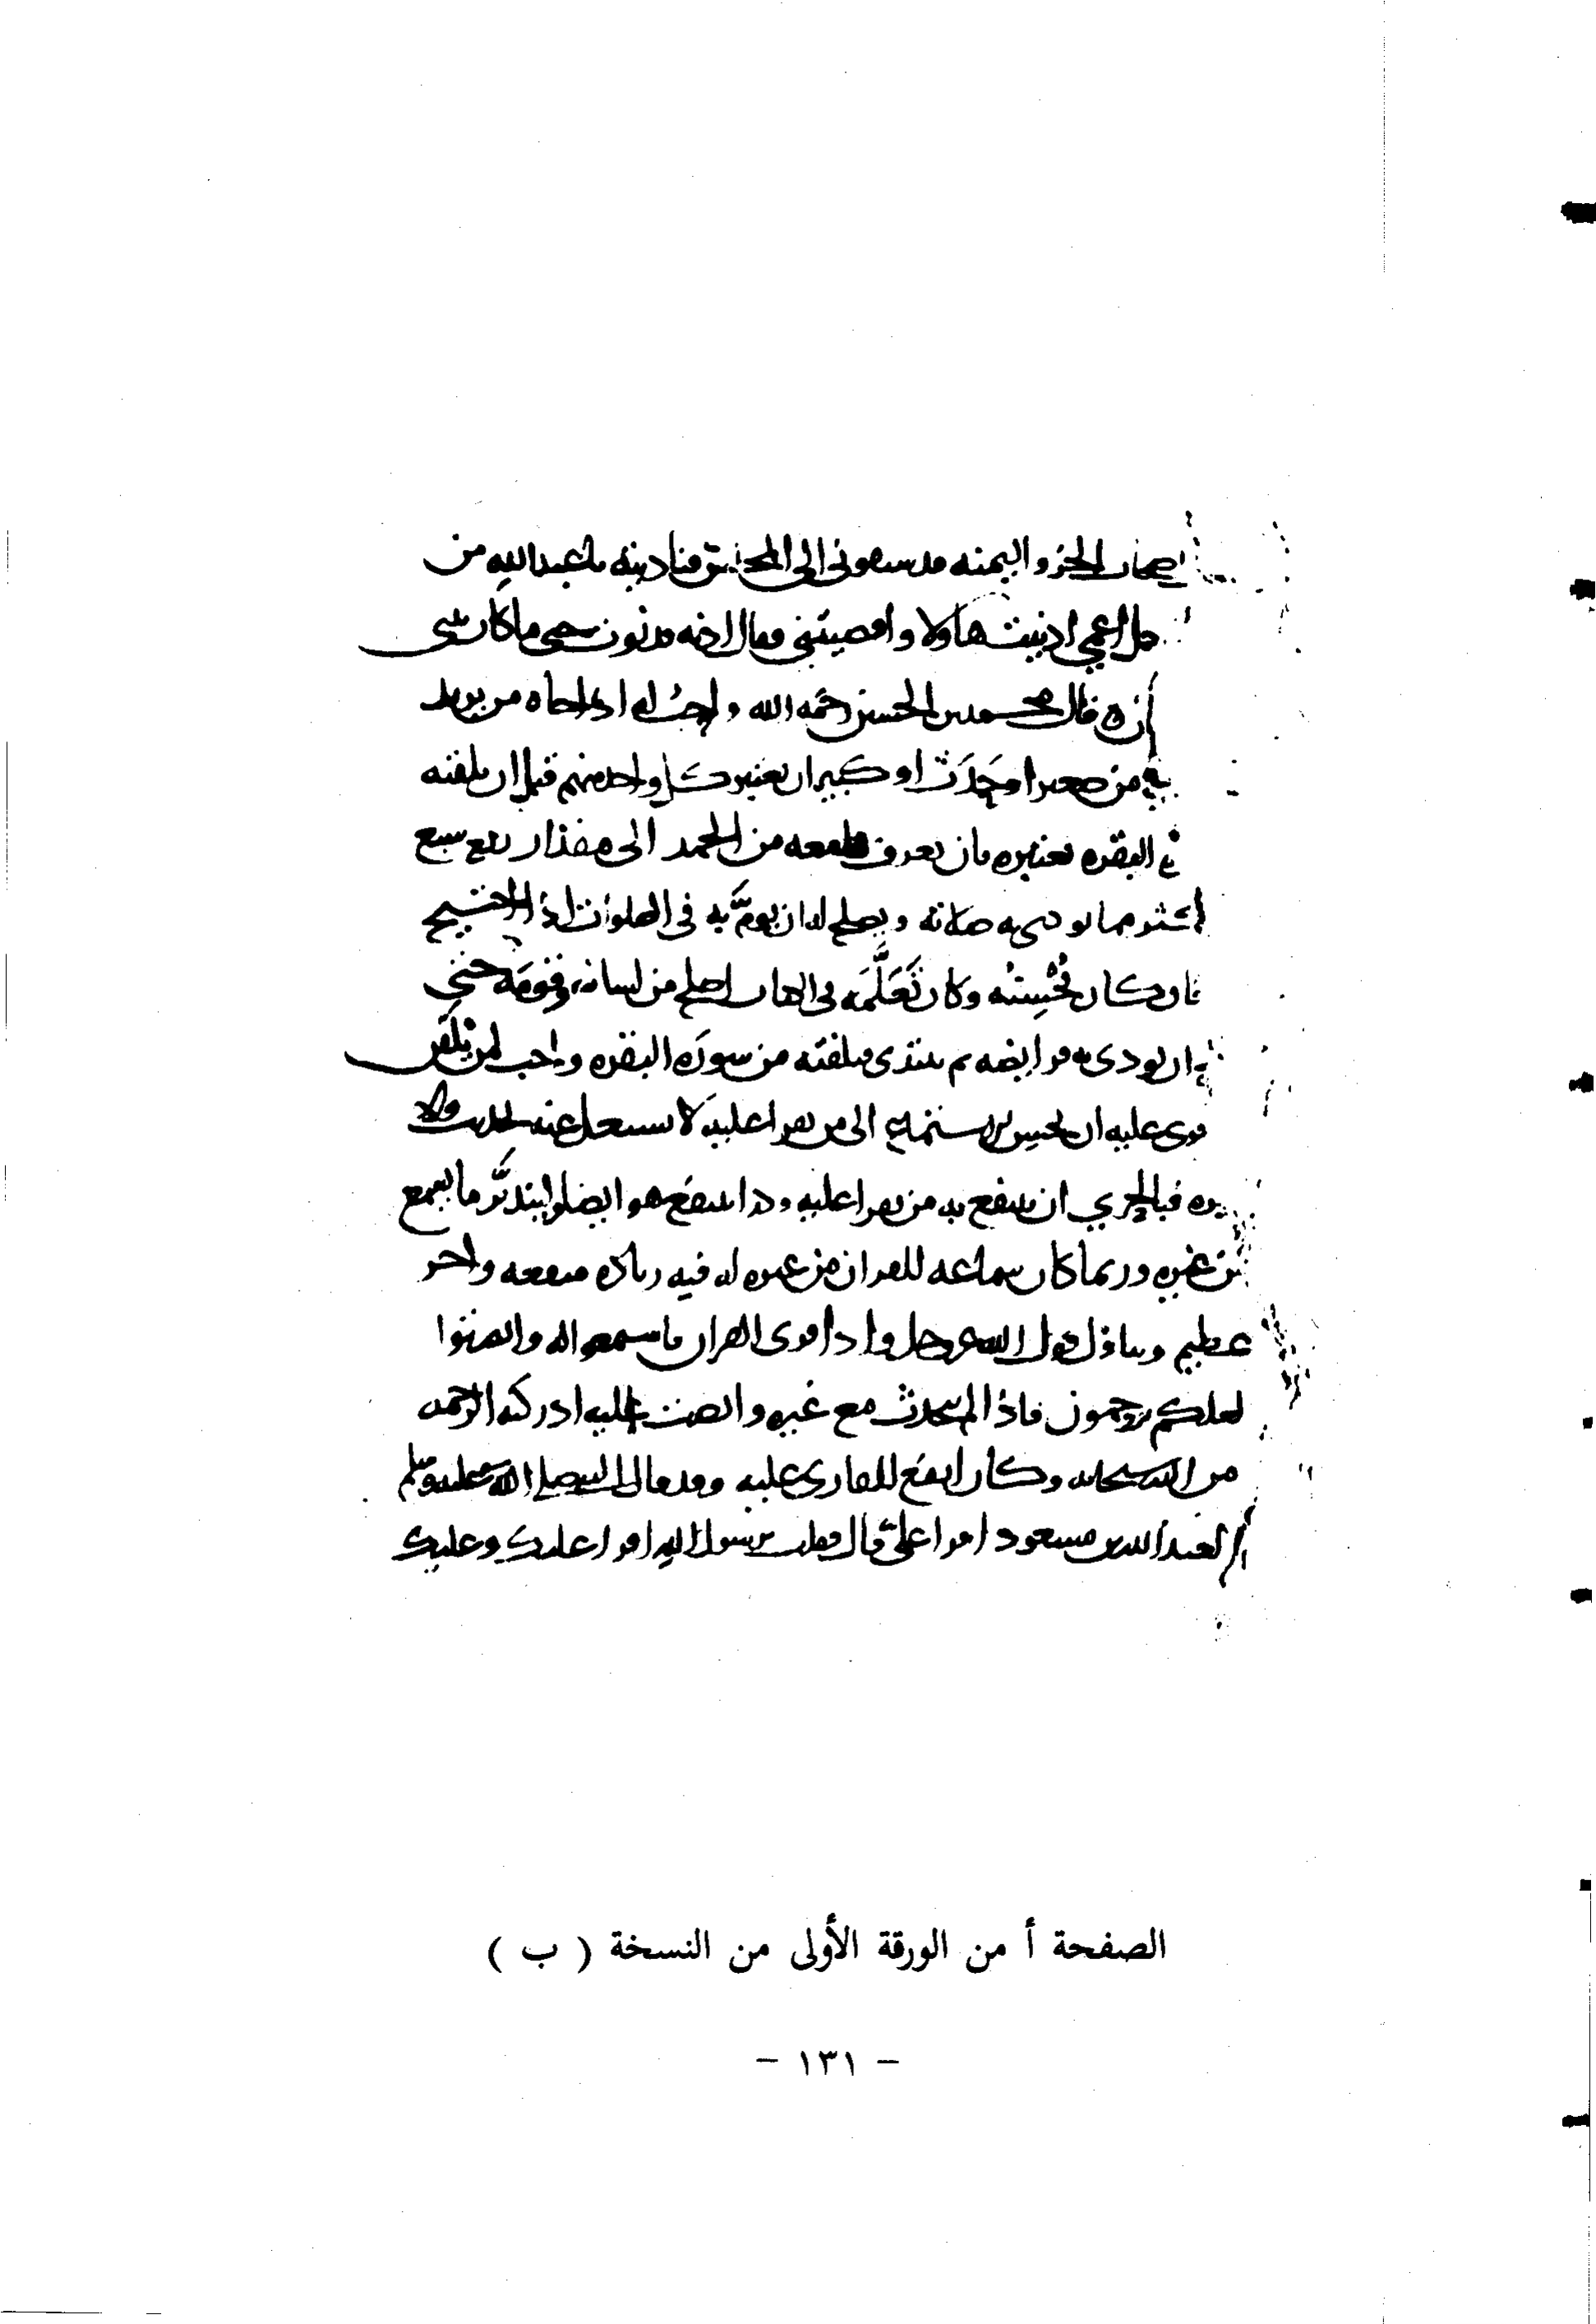 اصحاب الخز واليمنه قد سبقونى الى المجلس فناديته يا عبد الله من
اجل انى اعمى ادنيت هاولا واقصيتنى فقال ادنه فدنوت حتى ما كان بينى
قال محمد بن الحسين رحمه الله واحب له اذا جاه من يريد
من صغير او حدث او كبير ان يعتبر كل واحد منهم قبل ان يلقنه
البقره يعتبره بان يعرف ما معه من الحمد الى مقدار ربع سبع
او اكثر مما يودى به صلاته ويصلح ان يوم به فى الصلوات اذا احتيج
فان كان يحسنه وكان تعلمه فى الكتاب اصلح من لسانه وقومه حتى
ان يودى به فرايضه ثم يبتدى فيلقنه من سورة البقره واحب لمن يلقن
قرى عليه ان يحسن الاستماع الى من يقرا عليه لا يشتغل عنه بحديث ولا
غيره فبالحري ان ينتفع به من يقرا عليه وكذا ينتفع هو ايضا ويتدبر ما يسمع
من غيره وربما كان سماعه للقران من غيره له فيه زيادة منفعه واجر
عظيم ويتاول قول الله عز وجل واذا قرى القران فاستمعوا له وانصتوا
لعلكم ترحمون فاذا لم يتحدث مع غيره وانصت اليه ادركته الرحمه
من الله سبحانه وكان انفع للقارى عليه وقد قال النبي صلى الله عليه وسلم
لعبد الله بن مسعود اقرا علي قال فقلت يرسول الله اقرا عليك وعليك
الصفحة أ من الورقة الأولى من النسخة ( ب )
– ١٣١ –